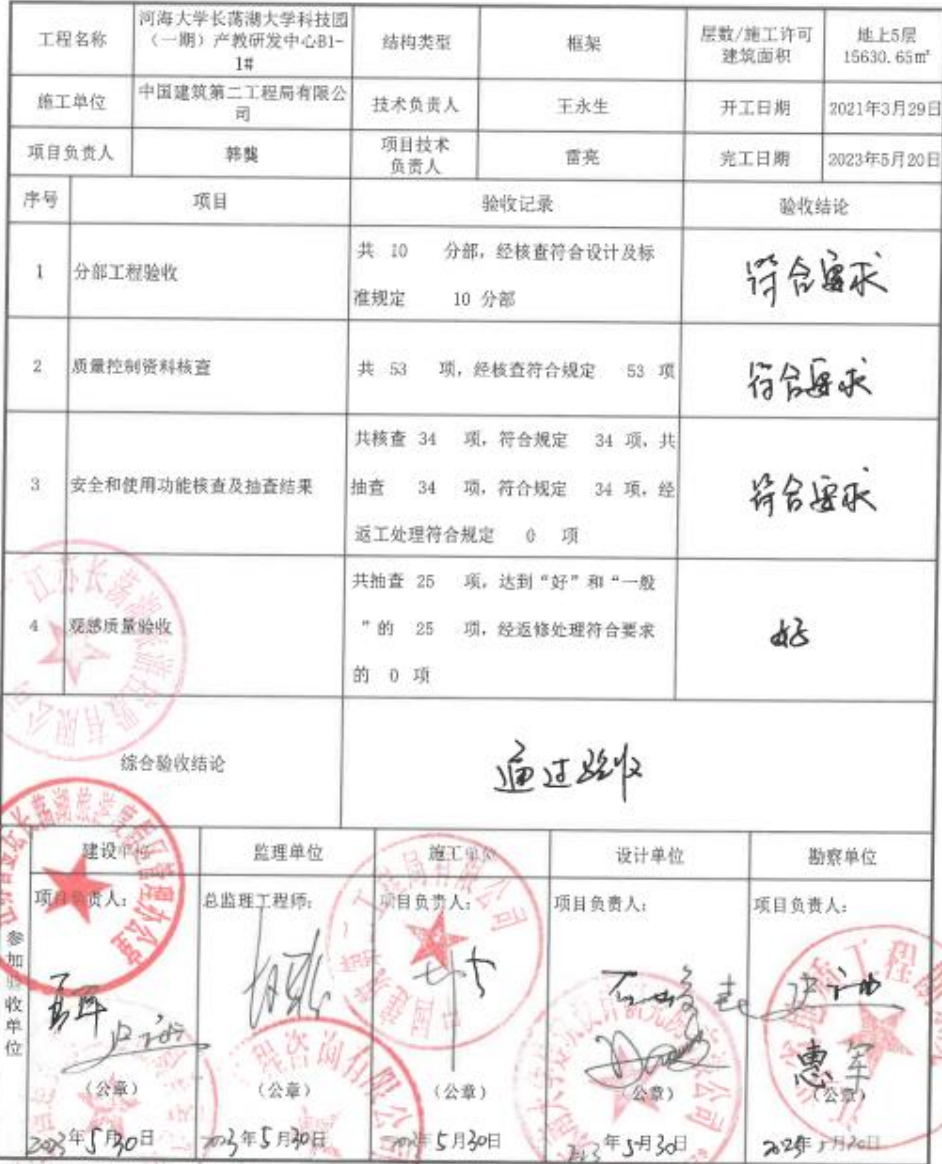 工程名称
河海大学长荡湖大学科技园
（一期）产教研发中心B1-
1#
结构类型
框架
层数/施工许可
建筑面积
地上5层
15630.65㎡
施工单位
中国建筑第二工程局有限公
司
技术负责人
王永生
开工日期
2021年3月29日
项目负责人
韩龑
项目技术
负责人
雷亮
完工日期
2023年5月20日
序号
项目
验收记录
验收结论
1
分部工程验收
共 10 分部，经核查符合设计及标
准规定 10 分部
符合要求
2
质量控制资料核查
共 53 项，经核查符合规定 53 项
符合要求
3
安全和使用功能核查及抽查结果
共核查 34 项，符合规定 34 项，共
抽查 34 项，符合规定 34 项，经
返工处理符合规定 0 项
符合要求
4
观感质量验收
共抽查 25 项，达到“好”和“一般
”的 25 项，经返修处理符合要求
的 0 项
好
综合验收结论
通过验收
参加验收单位
建设单位
监理单位
施工单位
设计单位
勘察单位
项目负责人：
总监理工程师：
项目负责人：
项目负责人：
项目负责人：
惠军
（公章）
（公章）
（公章）
（公章）
（公章）
2023年5月30日
2023年5月30日
2023年5月30日
2023年5月30日
2023年5月30日
江苏长荡湖旅游控股有限公司